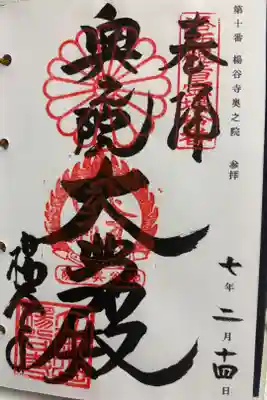 第十番 楊谷寺奥之院 参拝
七年二月十四日
奉拝
奥之院
大悲殿
楊谷寺